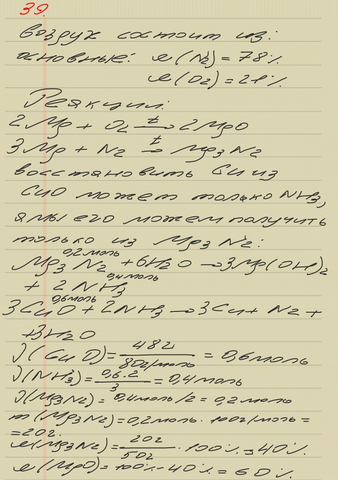 39.
Воздух состоит из:
основные: ω(N₂) = 78%
ω(O₂) = 21%
Реакции:
2Mg + O₂ →(t) 2MgO
3Mg + N₂ →(t) Mg₃N₂
восстановить Cu из
CuO может только NH₃,
а мы его можем получить
только из Mg₃N₂:
0,2моль
Mg₃N₂ + 6H₂O → 3Mg(OH)₂
0,4моль
+ 2NH₃
0,6моль
3CuO + 2NH₃ → 3Cu + N₂ +
+3H₂O
ν(CuO) = 48г/80г/моль = 0,6моль
ν(NH₃) = 0,6·2/3 = 0,4моль
ν(Mg₃N₂) = 0,4моль/2 = 0,2моль
m(Mg₃N₂) = 0,2моль · 100г/моль =
= 20г.
ω(Mg₃N₂) = 20г/50г · 100% = 40%
ω(MgO) = 100% - 40% = 60%.